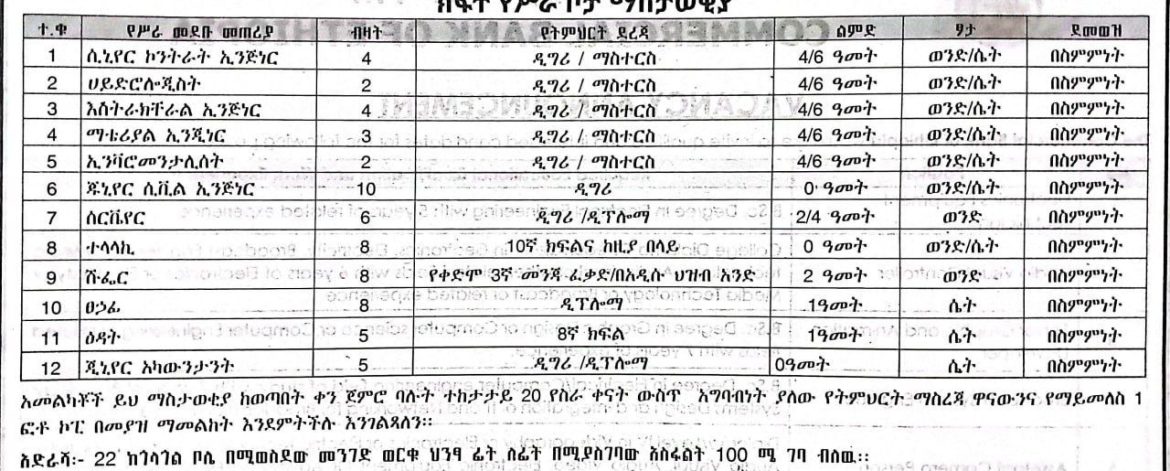 ክፍት የሥራ ቦታ ማስታወቂያ
ተ.ቁ የሥራ መደቡ መጠሪያ ብዛት የትምህርት ደረጃ ልምድ ፃታ ደመወዝ
1 ሲኒየር ኮንትራት ኢንጅነር 4 ዲግሪ / ማስተርስ 4/6 ዓመት ወንድ/ሴት በስምምነት
2 ሀይድሮሎጂስት 2 ዲግሪ / ማስተርስ 4/6 ዓመት ወንድ/ሴት በስምምነት
3 እስትራክቸራል ኢንጅነር 4 ዲግሪ / ማስተርስ 4/6 ዓመት ወንድ/ሴት በስምምነት
4 ማቴሪያል ኢንጂነር 3 ዲግሪ / ማስተርስ 4/6 ዓመት ወንድ/ሴት በስምምነት
5 ኢንቫሮመንታሊሰት 2 ዲግሪ / ማስተርስ 4/6 ዓመት ወንድ/ሴት በስምምነት
6 ጁኒየር ሲቪል ኢንጅነር 10 ዲግሪ 0 ዓመት ወንድ/ሴት በስምምነት
7 ሰርቬየር 6 ዲግሪ /ዲፕሎማ 2/4 ዓመት ወንድ በስምምነት
8 ተላላኪ 8 10ኛ ክፍልና ከዚያ በላይ 0 ዓመት ወንድ/ሴት በስምምነት
9 ሹፌር 8 የቀድሞ 3ኛ መንጃ ፈቃድ/በአዲሱ ህዝብ አንድ 2 ዓመት ወንድ በስምምነት
10 ፀኃፊ 8 ዲፕሎማ 1ዓመት ሴት በስምምነት
11 ዕዳት 5 8ኛ ክፍል 1ዓመት ሴት በስምምነት
12 ጂኒየር አካውንታንት 5 ዲግሪ /ዲፕሎማ 0ዓመት ሴት በስምምነት
አመልካቾች ይህ ማስታወቂያ ከወጣበት ቀን ጀምሮ ባሉት ተከታታይ 20 የስራ ቀናት ውስጥ አግባብነት ያለው የትምህርት ማስረጃ ዋናውንና የማይመለስ 1
ፎቶ ኮፒ በመያዝ ማመልከት እንደምትችሉ እንገልጻለን፡፡
አድራሻ፡- 22 ከጎላጎል ቦሌ በሚወስደው መንገድ ወርቁ ህንፃ ፊት ለፊት በሚያስገባው አስፋልት 100 ሜ ገባ ብሎ፡፡